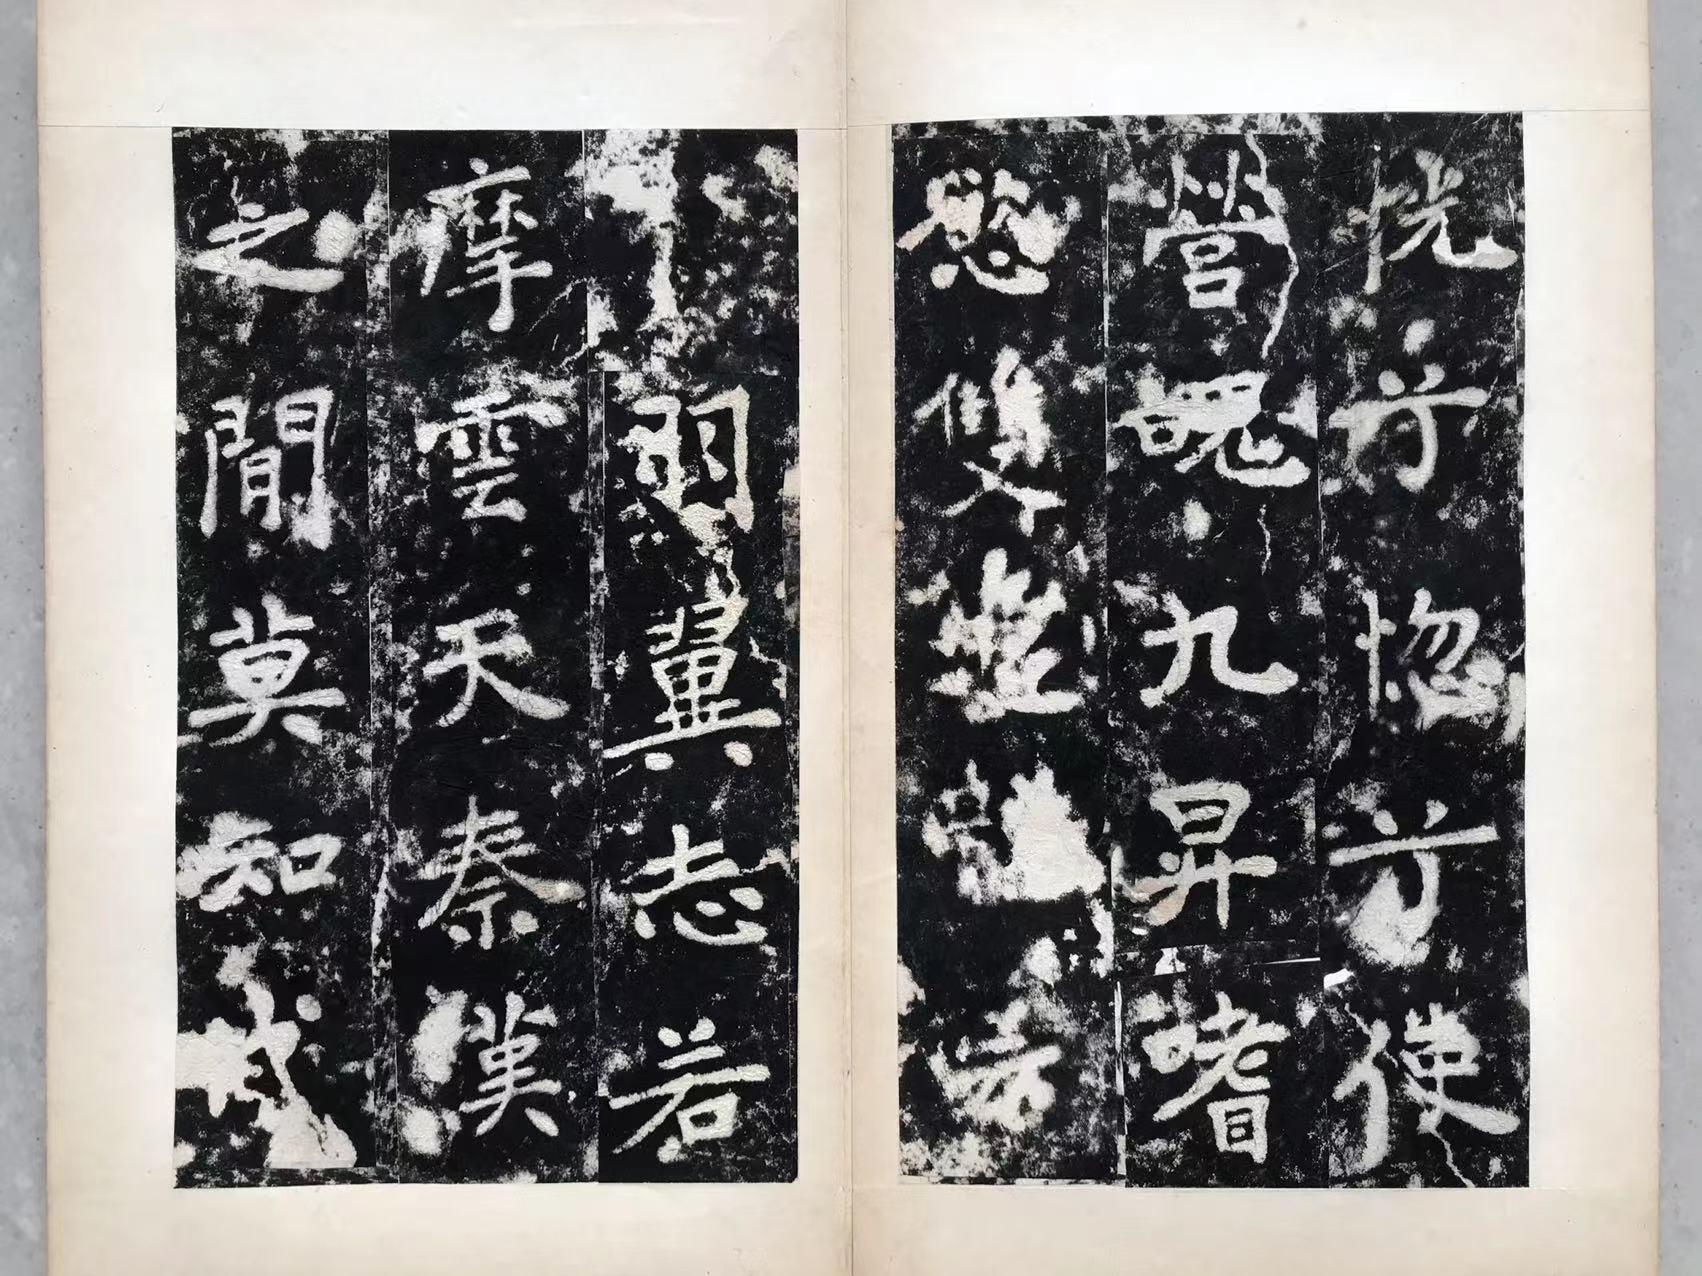 恍兮惚兮使
營魄九昇嗜
慾雙
羽翼志若
摩雲天秦漢
之間莫知